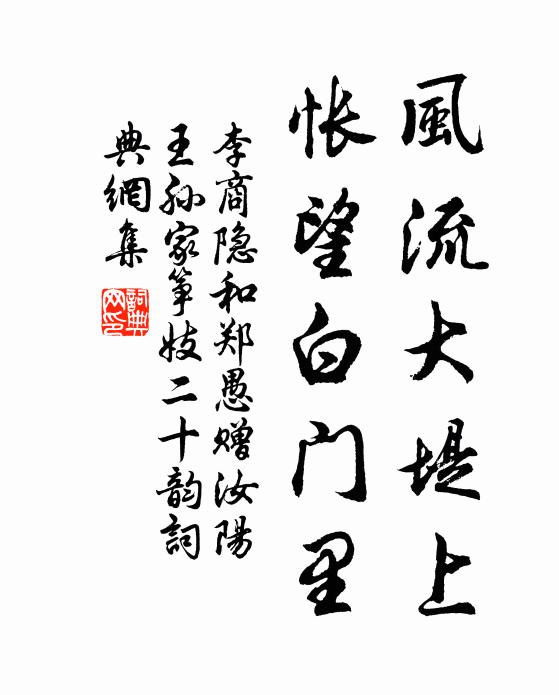 風流大堤上
怅望白门里
李商隐和郑愚赠汝陽
王孙家筝妓二十韵詞
典網集
詞典网印